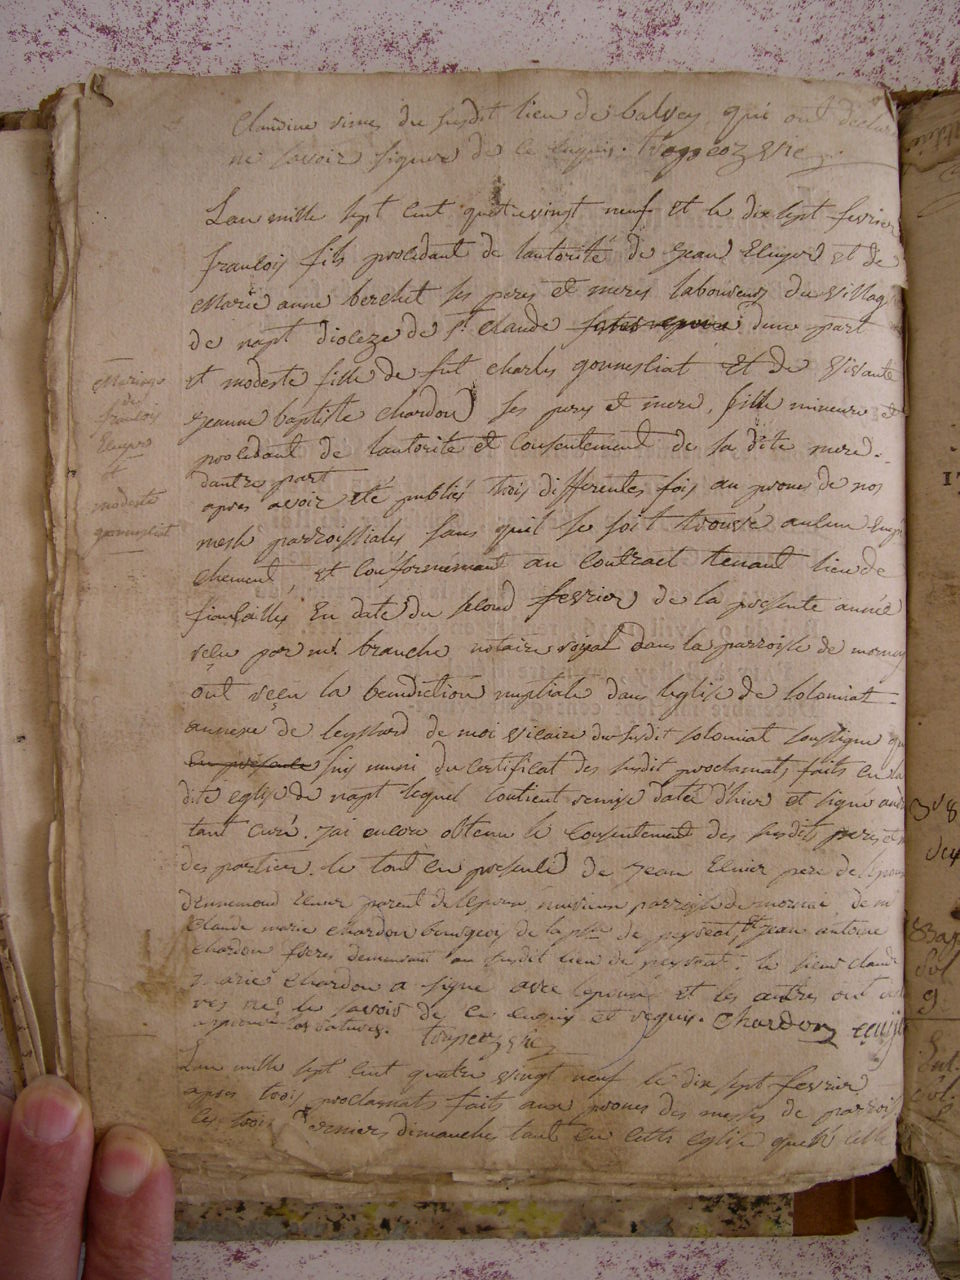 Claudine vimes du susdit lieu de balvey qui ont déclaré
ne savoir signer de ce enquis.
Lan mille sept cent quatrevingt neuf et le dix sept fevrier
francois fils procedant de lautorité de jean Eluyer et de
Marie anne berchet ses peres et meres laboureurs du village
de napt dioceze de St Claude dune part
et modeste fille de fut charles gonnessiat et de vivante
jeanne baptiste chardon ses peres et mere, fille mineure et
procedant de lautorité et Consentement de sa dite mere.
dautre part
apres avoir eté publiés trois differentes fois au prones de nos
messe parroissiales sans quil se soit trouvé aucun Emp
chement, et Conformement au contract tenant lieu de
fiancailles En date du second fevrier de la presente année
reçu par me branche notaire royal dans la parroisse de mornay
ont reçu la benediction nuptiale dans leglise de solomiat
annexe de leyssard de moi vicaire du susdit solomiat soussigné qui
en presence suis muni du certificat des susdit proclamats faits en la
dite eglise de napt lequel contient remise daté dhier et signé
tant curé. jai encore obtenu le Consentement des susdit peres et m
des parties. le tout en presence de jean Eluier pere de lepoux
Claude marie chardon bourgeois de la psse de peyseat, et jean antoine
chardon freres demeurant au susdit lieu de peyseat. le sieur claude
marie chardon a signé avec lepoux et les autres ont
de ce enquis et requis. Chardon
Lan mille sept cent quatre vingt neuf le dix sept fevrier
apres trois proclamats faits aux prones des messes de parrois
les trois derniers dimanches tant en cette eglise quen celle
Mariage
de
francois
Eluyer
et
modeste
gonnessiat